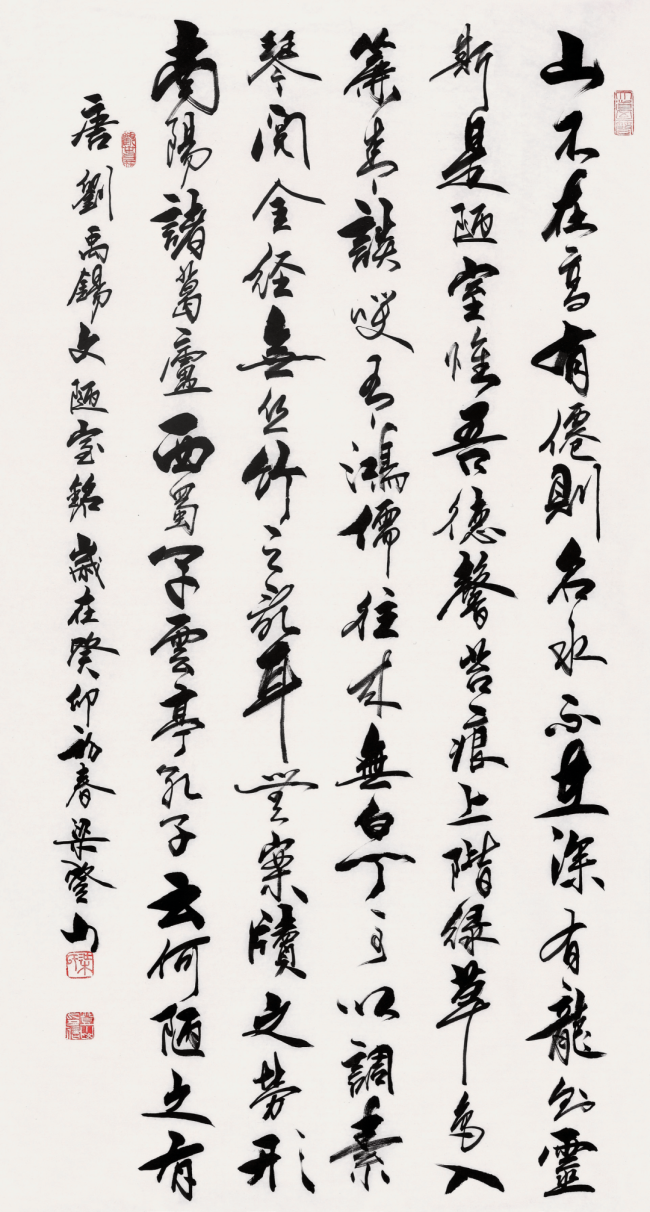 山不在高有僊則名水不在深有龍則靈
斯是陋室惟吾德馨苔痕上階緑草色入
簾青談咲有鴻儒往来無白丁可以調素
琴閲金経無丝竹之亂耳無案牘之勞形
南陽諸葛廬西蜀子雲亭孔子云何陋之有
唐劉禹錫文陋室銘歲在癸卯初春梁登山